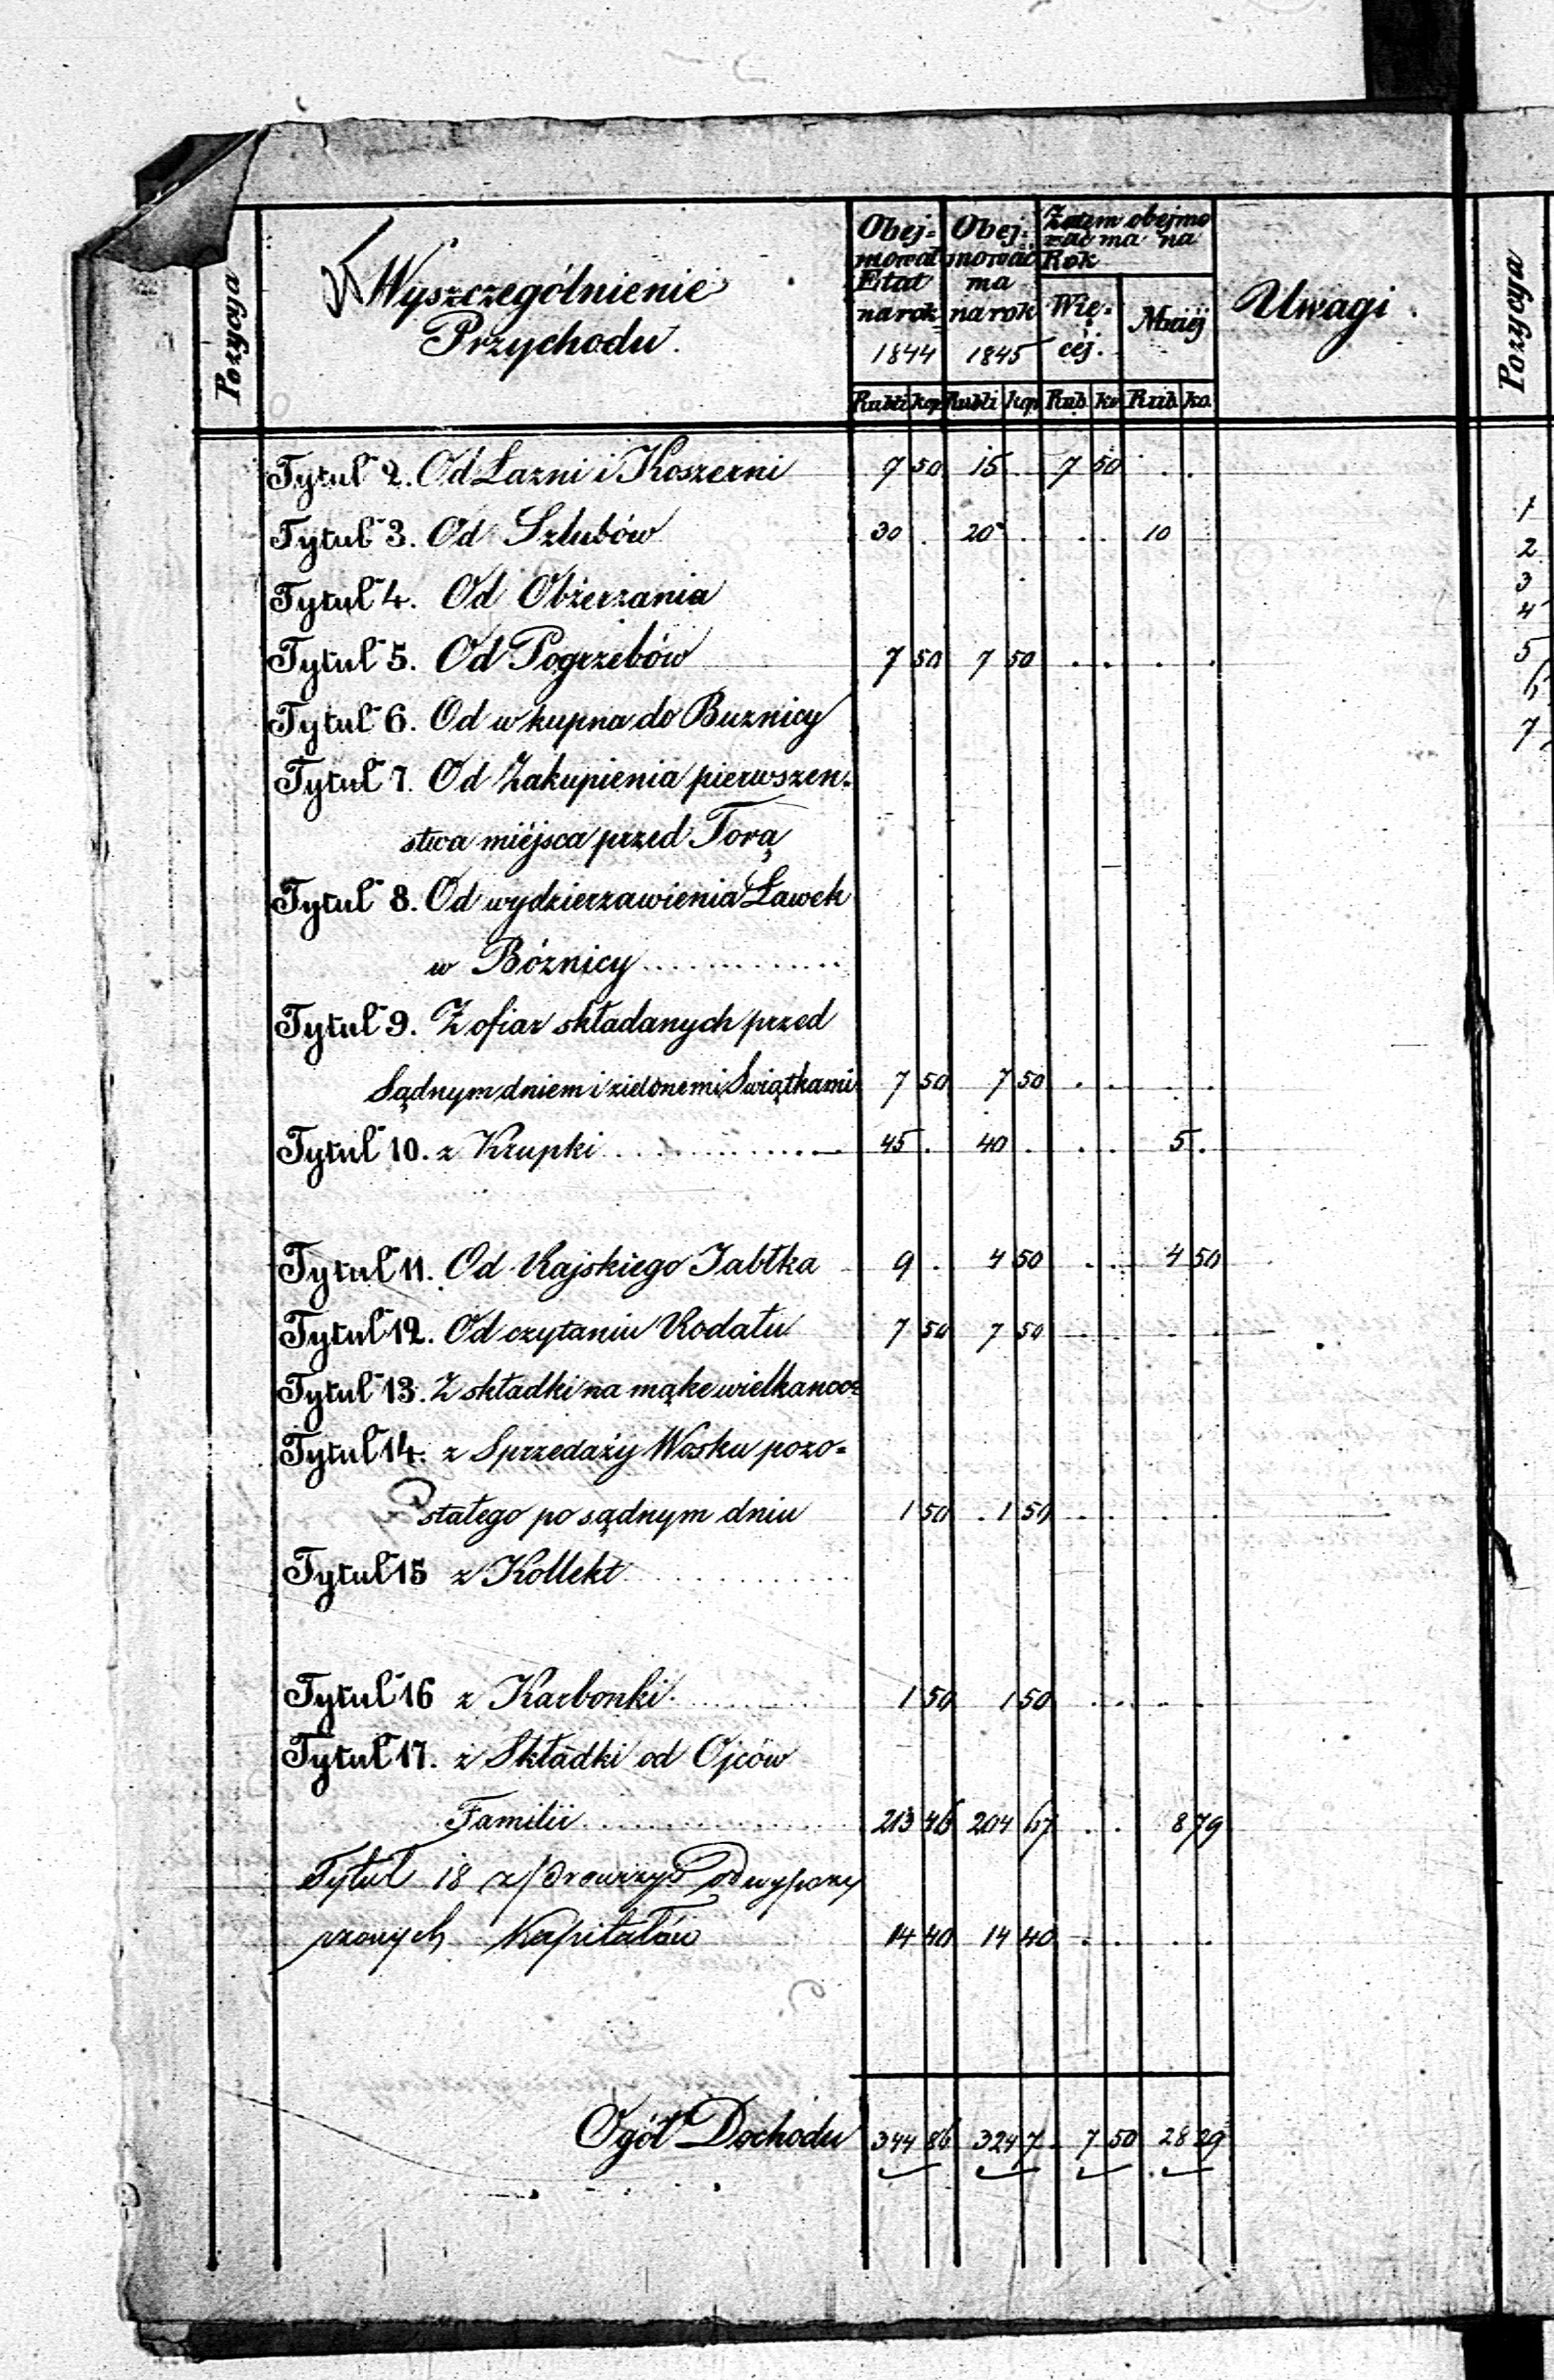 Pozycya
Wyszczególnienie
Przychodu.
Obej-
mował
Etat
na rok
1844
Obej-
mować
ma
na rok
1845
Zatem obejmo
wać ma na
Rok
Wię-
céj.
Mniéj
Uwagi
Pozycya
Rubli kop Rubli kop Rub. ko Rub. ko
Tytuł 2. Od Łazni i Koszerni 7 50 15 . 7 50 . .
Tytuł 3. Od Szlubów 30 . 20 . . . 10
Tytuł 4. Od Obżerzania
Tytuł 5. Od Pogrzebów 7 50 7 50 . . . .
Tytuł 6. Od wkupna do Buznicy
Tytuł 7. Od Zakupienia pierwszen-
stwa miéjsca przed Torą
Tytuł 8. Od wydzierzawienia Ławek
w Bóznicy..............
Tytuł 9. Z ofiar składanych przed
Sądnym dniem i zielonemi Swiątkami 7 50 7 50 . . . .
Tytuł 10. z Krupki.............. 45 . 40 . . . 5 .
Tytuł 11. Od Rajskiego Jabłka 9 . 4 50 . . 4 50
Tytuł 12. Od czytaniu Rodału 7 50 7 50 . . . .
Tytuł 13. Z składki na mąke wielkanoc
Tytuł 14. z Sprzedaży Wosku pozo=
stałego po sądnym dniu 1 50 1 50 . . . .
Tytuł 15 z Kollekt..............
Tytuł 16 z Karbonki.............. 1 50 1 50 . . . .
Tytuł 17. z Składki od Ojców
Familii.............. 213 46 204 67 . . 8 79
Tytuł 18 od wypozy
czonych Kapitałów 14 40 14 40 . . . .
Ogół Dochodu 344 86 324 7 7 50 28 29
1
2
3
4
5
6
7